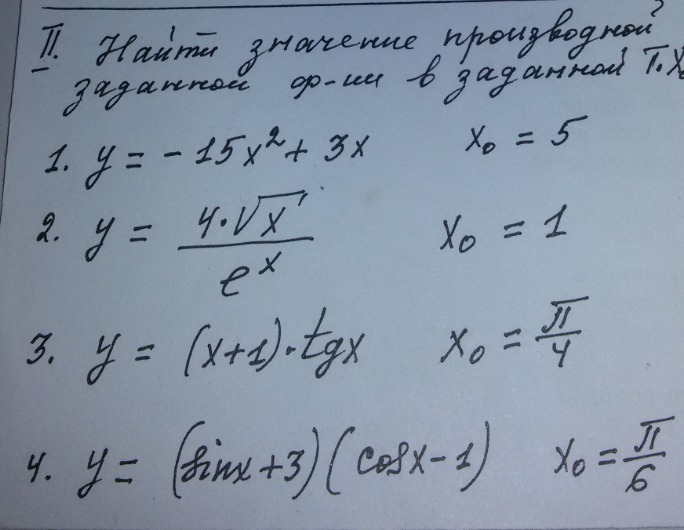 II. Найти значение производной
заданной ф-ии в заданной т. x₀
1. y = -15x² + 3x x₀ = 5
2. y = 4·√x / eˣ x₀ = 1
3. y = (x+1)·tgx x₀ = π/4
4. y = (sinx+3)(cosx-1) x₀ = π/6